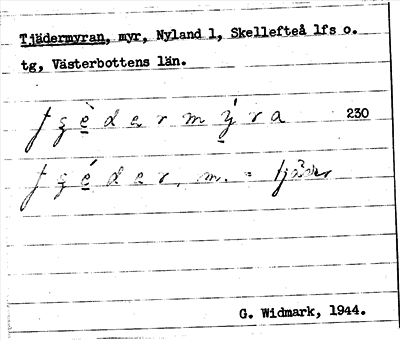 Tjädermyran, myr, Nyland 1, Skellefteå lfs o.
tg, Västerbottens län.
230
m. = tjäder
G. Widmark, 1944.